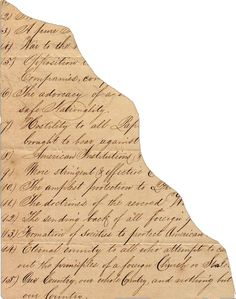 3) A pure
4) War to the
5) Opposition
Companies, con
6) The advocacy of a
safe Nationality.
7) Hostility to all Pap
brought to bear against
8) American Institutions &
9) More stringent & effective
10) The amplest protection to
11) The doctrines of the revered W
12) The sending back of all foreign
13) Formation of societies to protect American
14) Eternal enmity to all who attempt to c
out the principles of a foreign Church or State
15) Our Country, our whole Country, and nothing but
our Country.